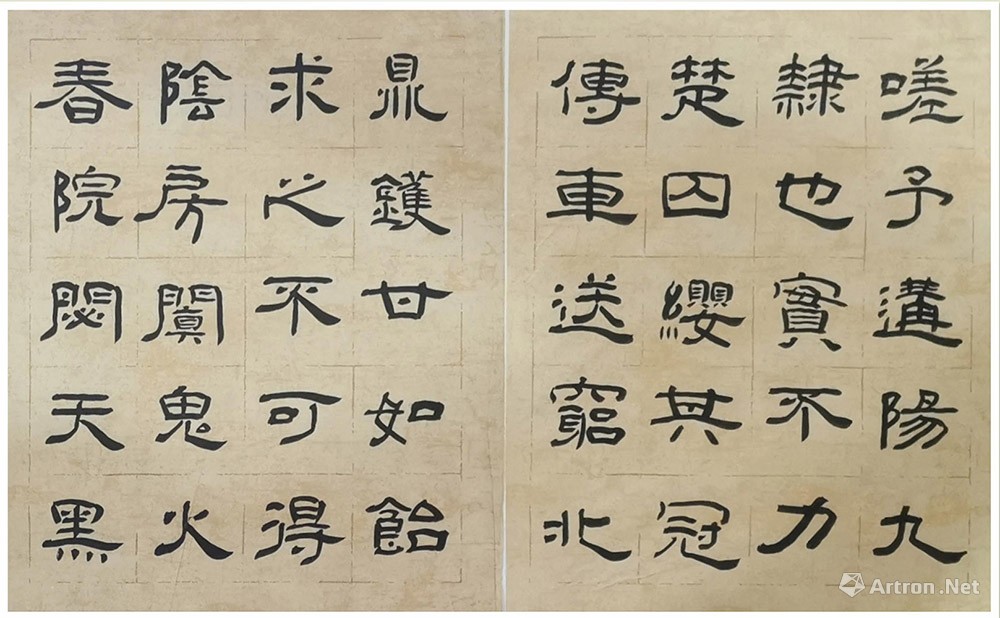 嗟予遘陽九
隸也實不力
楚囚纓其冠
傳車送窮北
鼎鑊甘如飴
求之不可得
陰房闃鬼火
春院閟天黑
Artron.Net